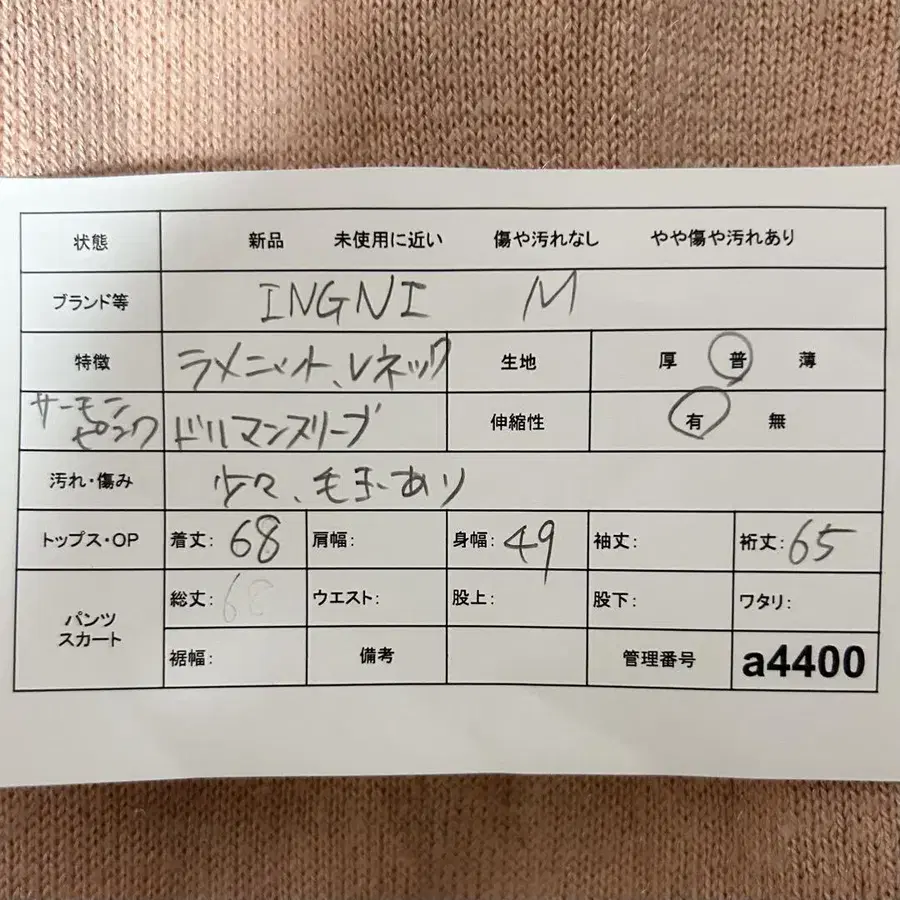 状態 新品 未使用に近い 傷や汚れなし やや傷や汚れあり
ブランド等 INGNI M
特徴 ラメニット、Vネック 生地 厚 普 薄
サーモン
ピンク ドルマンスリーブ 伸縮性 有 無
汚れ・傷み 少々、毛玉あり
トップス・OP 着丈: 68 肩幅: 身幅: 49 袖丈: 裄丈: 65
パンツ
スカート
総丈: 68 ウエスト: 股上: 股下: ワタリ:
裾幅: 備考 管理番号 a4400